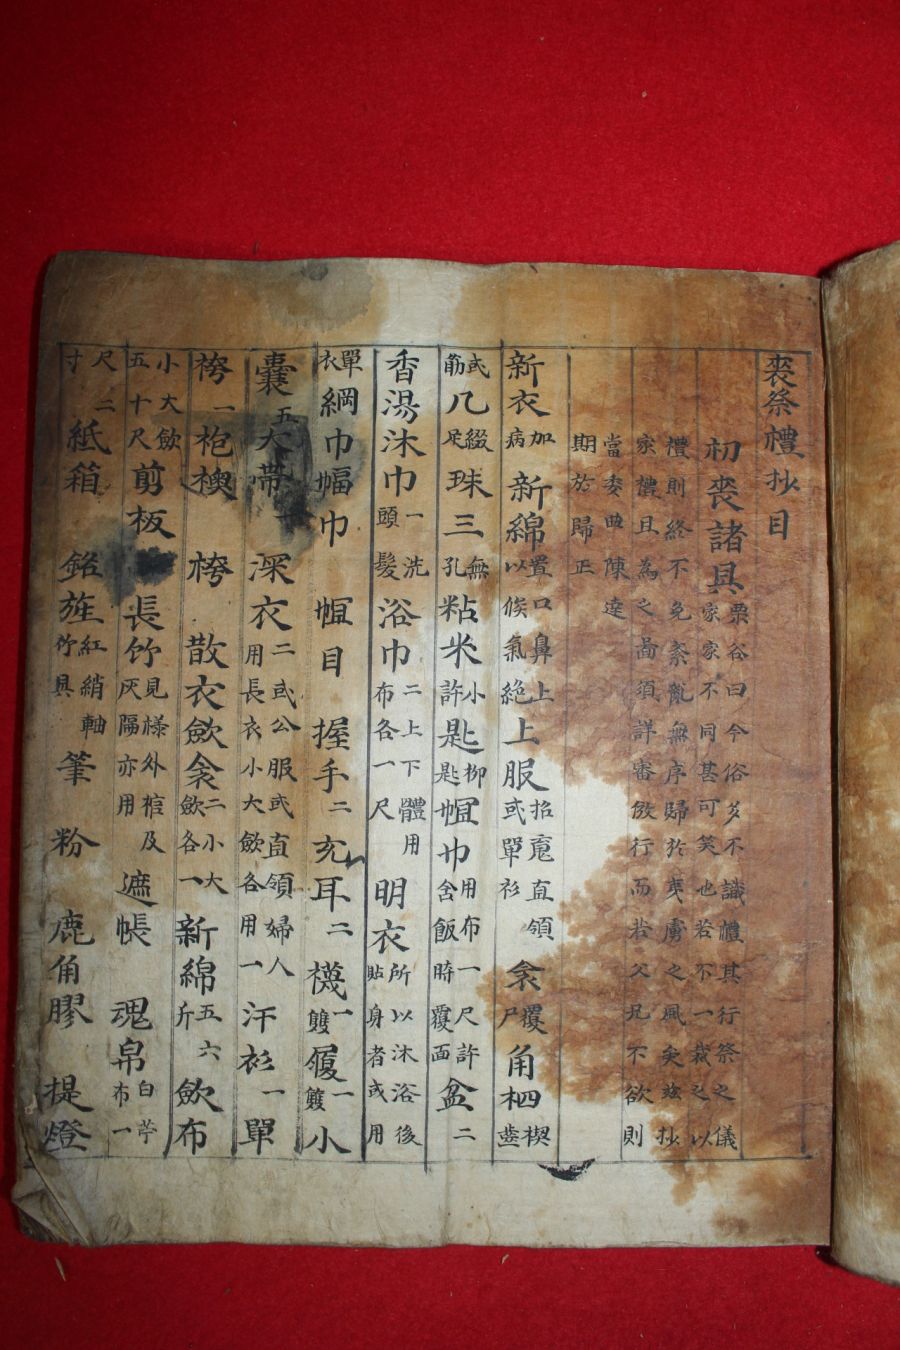 喪祭禮抄目
初喪諸具 栗谷曰今俗多不識禮其行祭之儀家家不同甚可笑也若不一裁之以
禮則終不免紊亂無序歸於夷虜之風矣玆抄家禮且為之啚須詳審倣行而若父兄不欲則
當委曲陳達期於歸正
新衣 加病 新綿 置口鼻上以候氣絶 上服 招魂直領或單衫 衾 覆尸 角柶 楔齒
或筋 几 綴足 珠三 無孔 粘米 小許 匙 柳匙 幎巾 用布一尺許舍飯時覆面 盆二
香湯 沐巾 一洗頭髮 浴巾 二上下體用布各一尺 明衣 所以沐浴後貼身者或用
單衣 網巾 幅巾 幎目 握手二 充耳二 襪一雙 履一雙 小
囊五 大帶一 深衣 二或公服或直領婦人用長衣小大歛各用一 汗衫一 單
袴一 袍襖 袴 散衣 歛衾 二小大歛各一 新綿 五六斤 歛布
小大歛五十尺 剪板 長竹 見樣外棺及灰隔亦用 遮帳 魂帛 白苧布一
尺二寸 紙箱 銘旌 紅綃軸竹具 筆 粉 鹿角膠 提燈